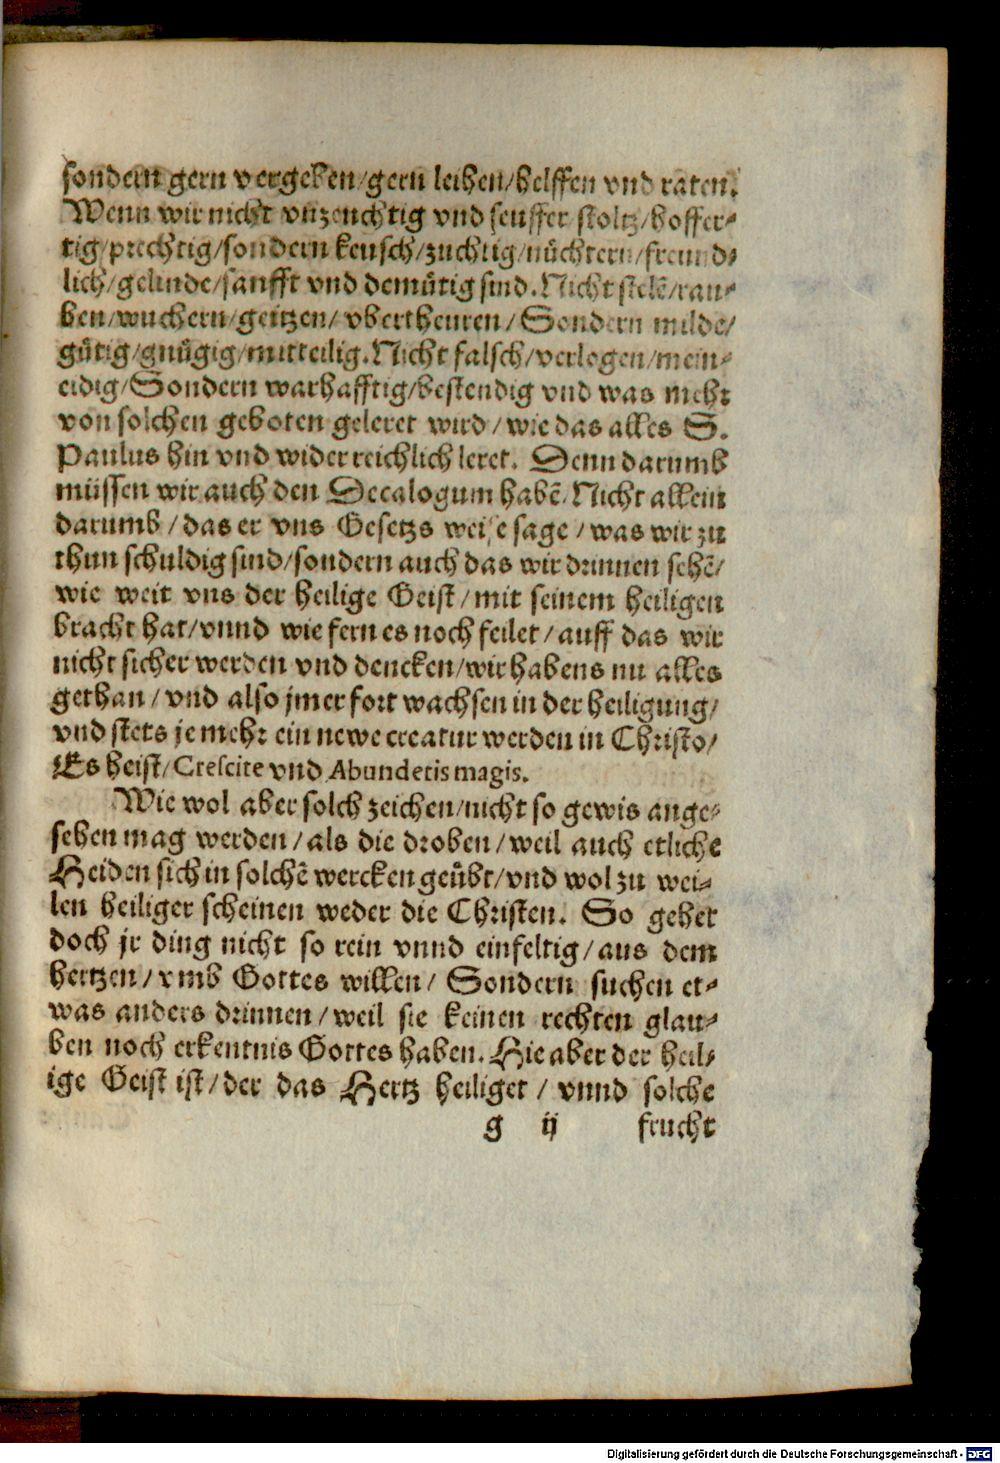 sondern gern vergeben/gern leihen/helffen vnd raten.
Wenn wir nicht vnzeuchtig vnd seuffer stoltz/hoffer-
tig/prechtig/sondern keusch/zuchtig/nüchtern/freund-
lich/gelinde/sanfft vnd demütig sind. Nicht stelē/rau-
ben/wuchern/geitzen/vbertheuren/Sondern milde/
gütig/gnügig/mitteilig. Nicht falsch/verlogen/mein-
eidig/Sondern warhafftig/bestendig vnd was mehr
von solchen geboten geleret wird/wie das alles S.
Paulus hin vnd wider reichlich leret. Denn darumb
müssen wir auch den Decalogum habē. Nicht allein
darumb/das er vns Gesetzs weise sage/was wir zu
thun schuldig sind/sondern auch das wir drinnen sehē/
wie weit vns der heilige Geist/mit seinem heiligen
bracht hat/vnnd wie fern es noch feilet/auff das wir
nicht sicher werden vnd dencken/wir habens nu alles
gethan/vnd also jmer fort wachsen in der heiligung/
vnd stets je mehr ein newe creatur werden in Christo/
Es heist/Crescite vnd Abundetis magis.
Wie wol aber solch zeichen/nicht so gewis ange-
sehen mag werden/als die droben/weil auch etliche
Heiden sich in solchē wercken geübt/vnd wol zu wei-
len heiliger scheinen weder die Christen. So gehet
doch jr ding nicht so rein vnnd einfeltig/aus dem
hertzen/vmb Gottes willen/Sondern suchen et-
was anders drinnen/weil sie keinen rechten glau-
ben noch erkentnis Gottes haben. Hie aber der heil-
ige Geist ist/der das Hertz heiliget/vnnd solche
g ij frucht
Digitalisierung gefördert durch die Deutsche Forschungsgemeinschaft - DFG